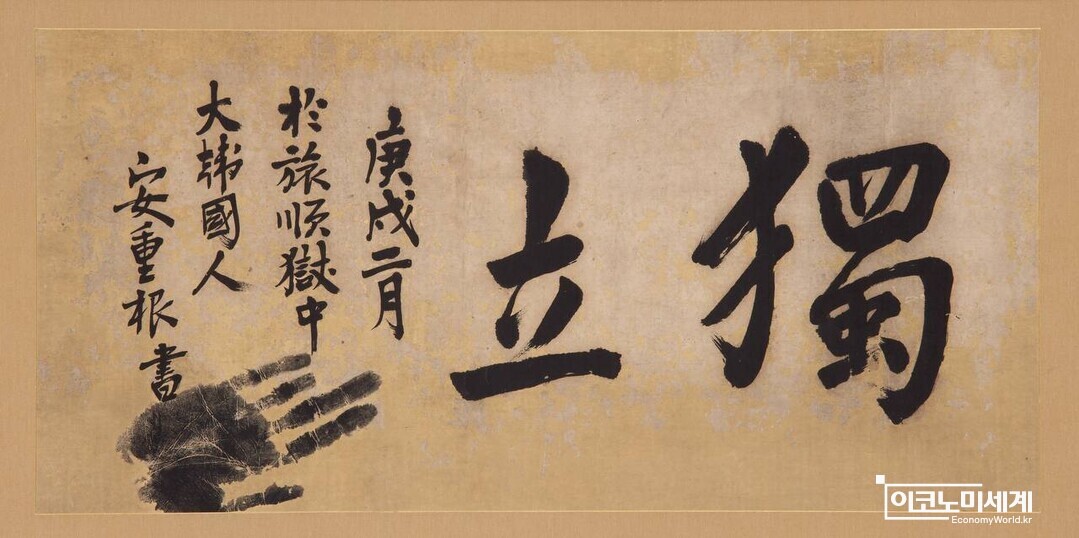 獨立
庚戌二月
於旅順獄中
大韓國人
安重根書
이코노미세계
EconomyWorld.kr